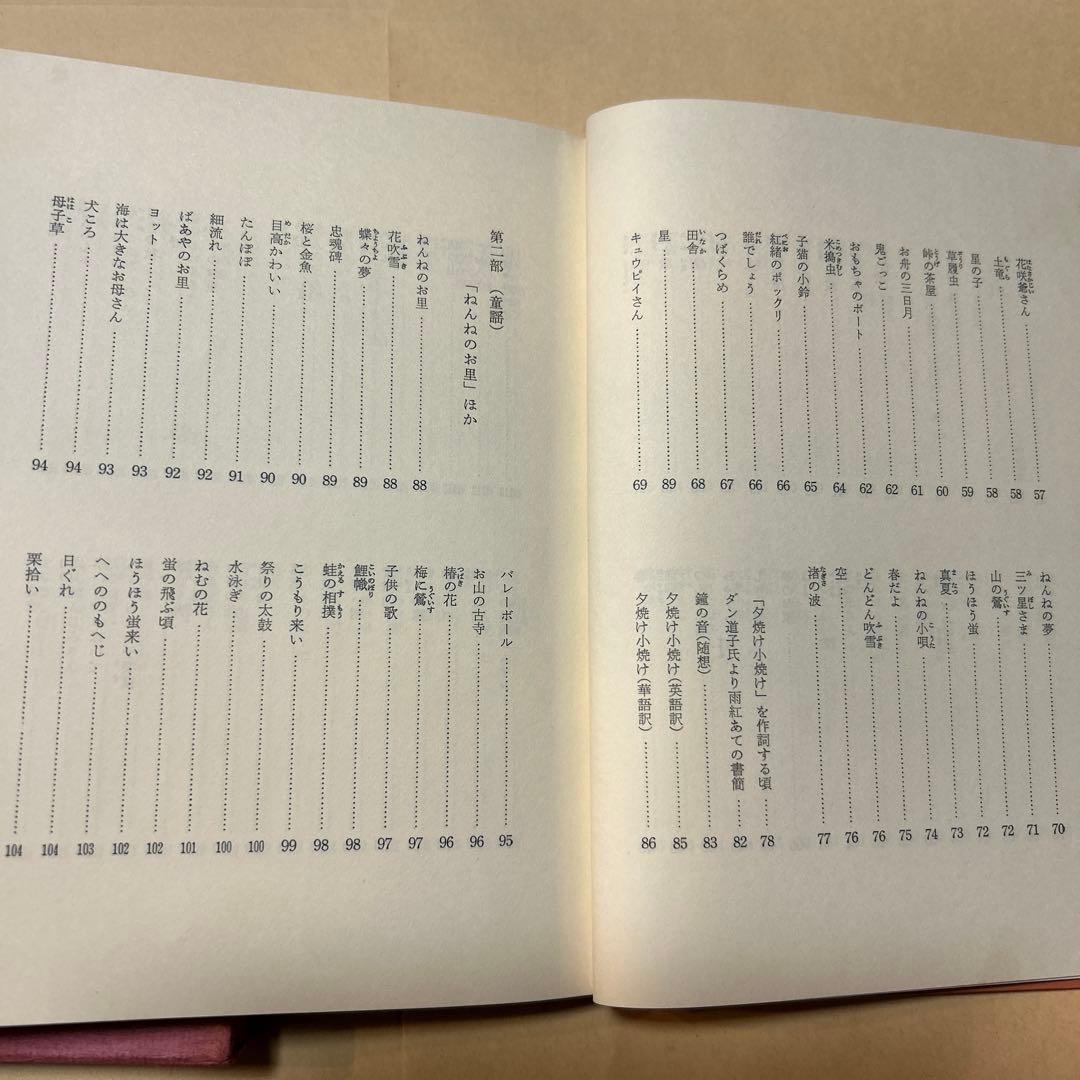 花咲爺さん……57
土竜……58
星の子……58
草履虫……59
峠の茶屋……60
お舟の三日月……61
鬼ごっこ……62
おもちゃのボート……62
米搗虫……64
子猫の小鈴……65
紅緒のポックリ……66
誰でしょう……66
つばくらめ……67
田舎……68
星……89
キュウピイさん……69
ねんねの夢……70
三ツ星さま……71
山の鶯……72
ほうほう蛍……72
真夏……73
ねんねの小唄……74
春だよ……75
どんどん吹雪……76
空……76
渚の波……77
「夕焼け小焼け」を作詞する頃……78
ダン道子氏より雨紅あての書簡……82
鐘の音(随想)……83
夕焼け小焼け(英語訳)……85
夕焼け小焼け(華語訳)……86
第二部(童謡)
「ねんねのお里」ほか
ねんねのお里……88
花吹雪……88
蝶々の夢……89
忠魂碑……89
桜と金魚……90
目高かわいい……90
たんぽぽ……91
細流れ……92
ばあやのお里……92
ヨット……93
海は大きなお母さん……93
犬ころ……94
母子草……94
バレーボール……95
お山の古寺……96
椿の花……96
梅に鶯……97
子供の歌……97
鯉幟……98
蛙の相撲……98
こうもり来い……99
祭りの太鼓……100
水泳ぎ……100
ねむの花……101
蛍の飛ぶ頃……102
ほうほう蛍来い……102
へへののもへじ……103
日ぐれ……104
栗拾い……104